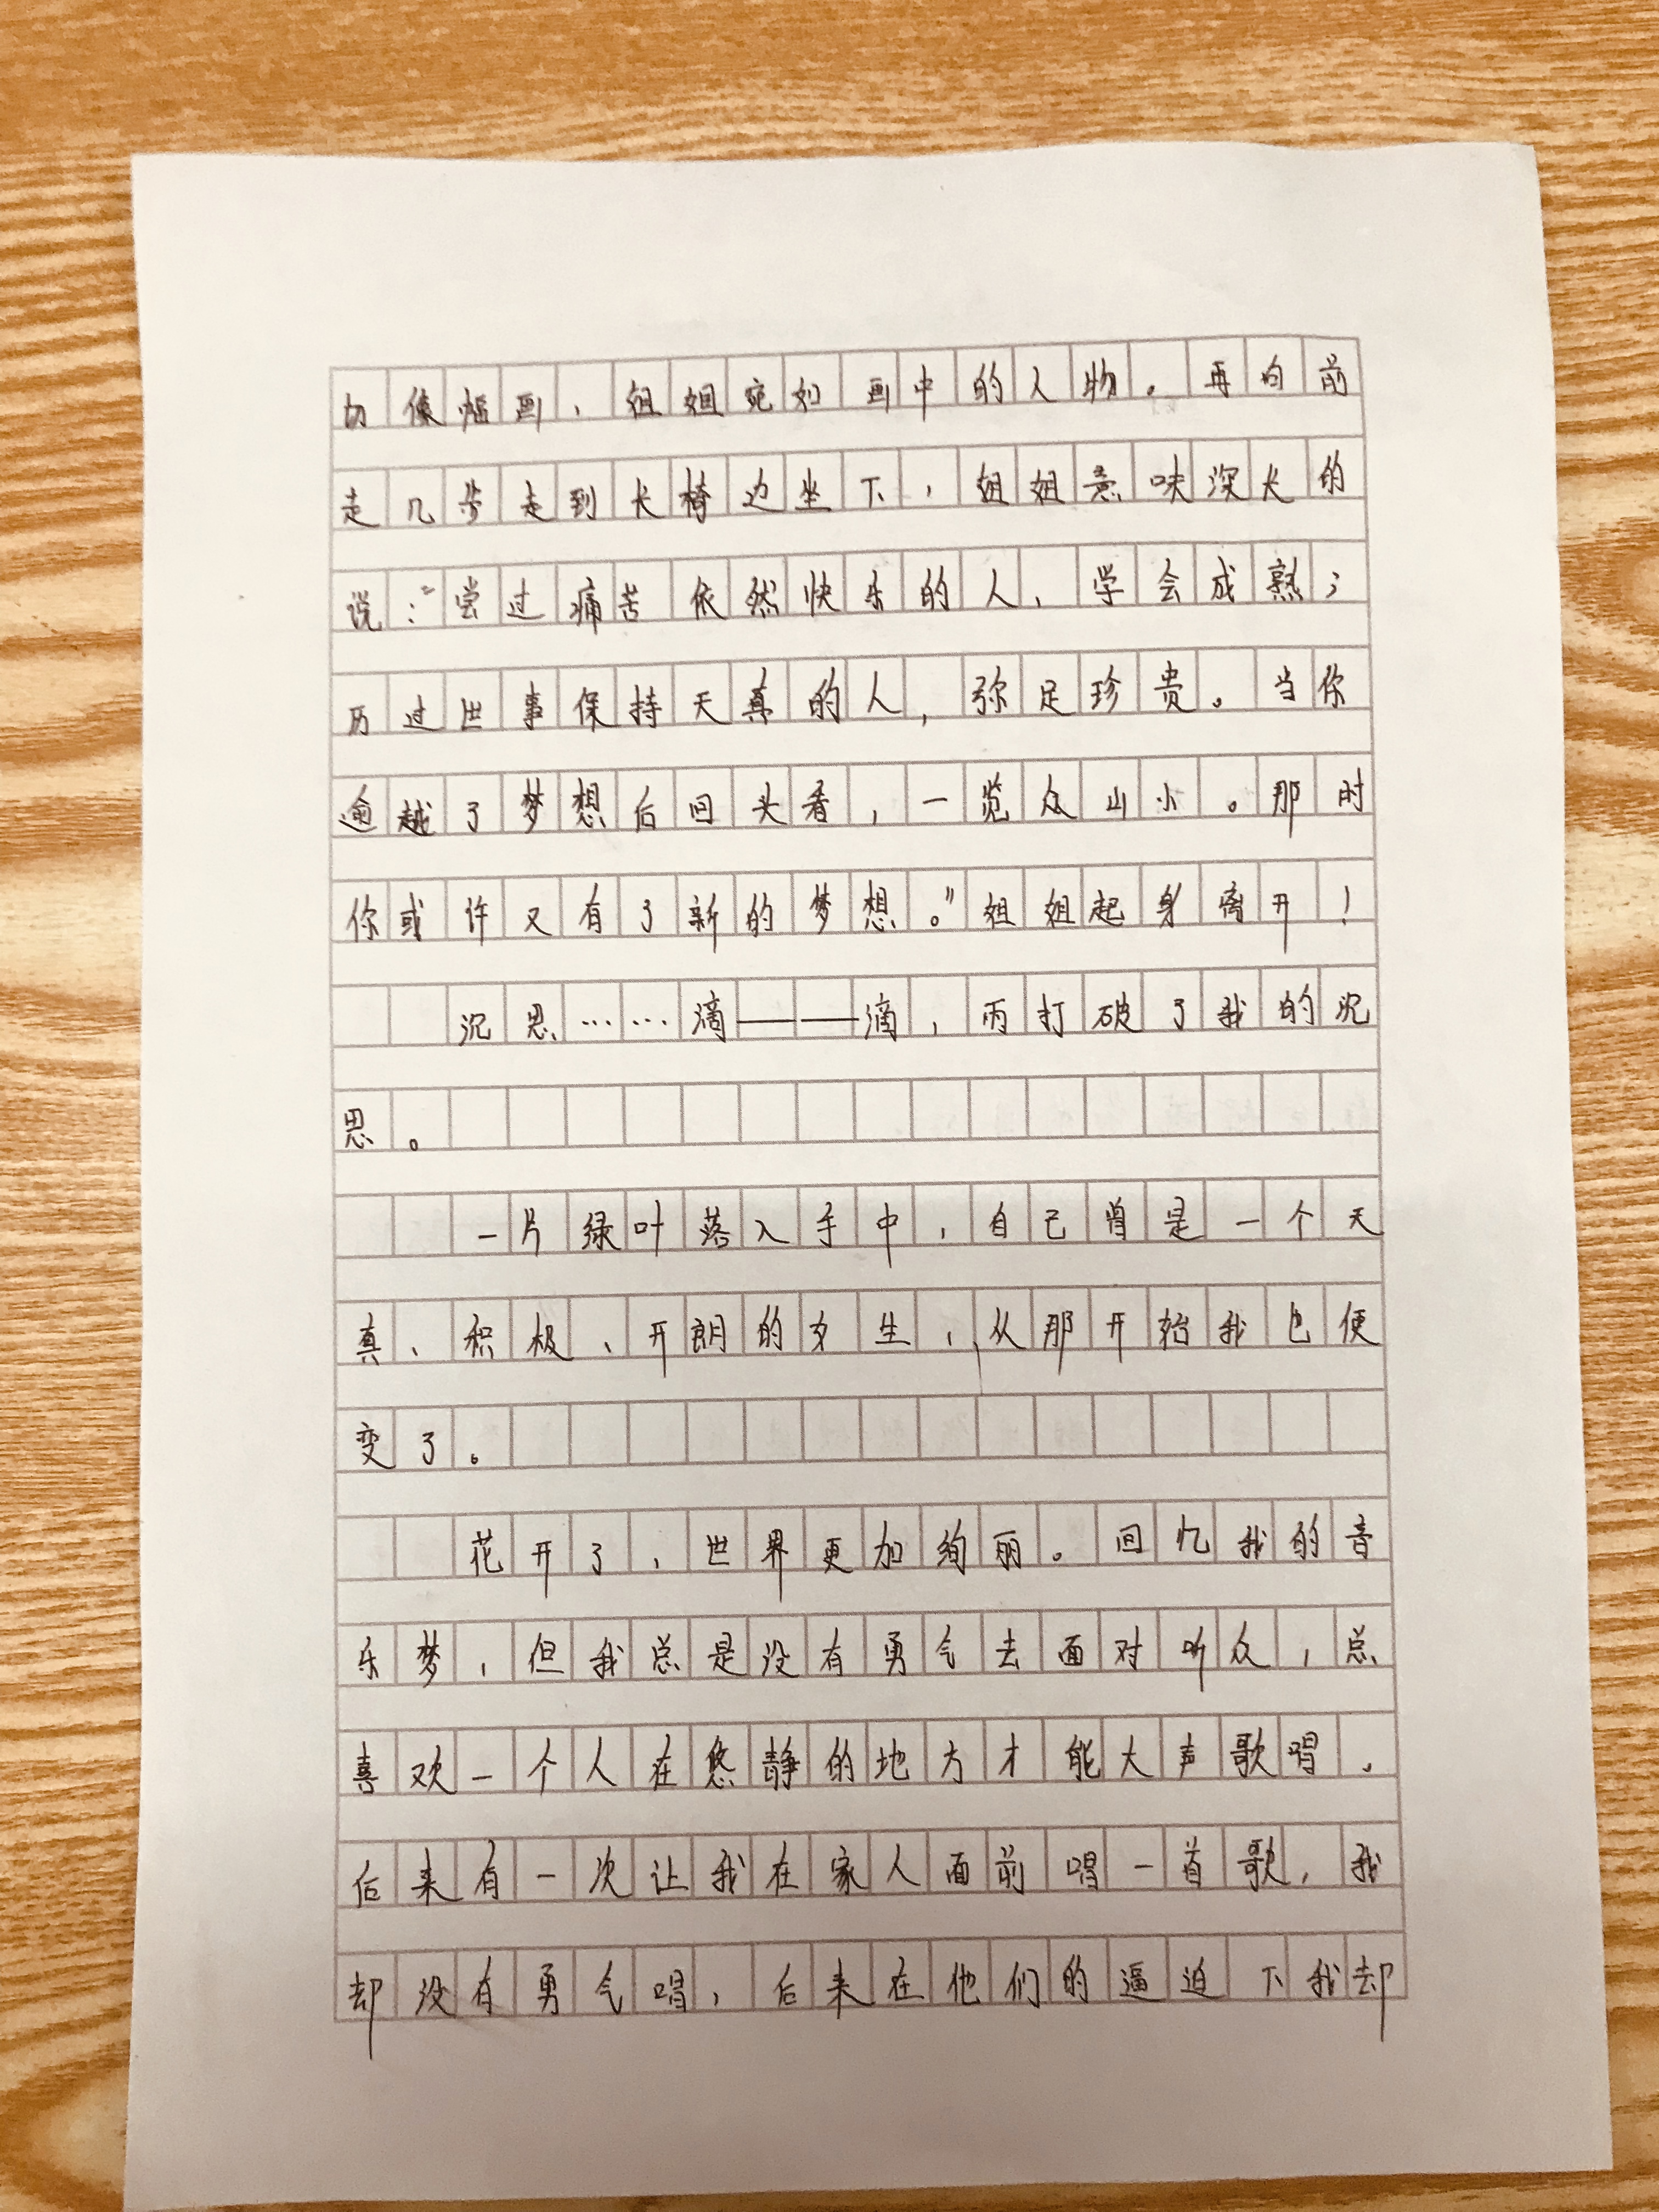 切像幅画，姐姐宛如画中的人物。再向前
走几步走到长椅边坐下，姐姐意味深长的
说：“尝过痛苦依然快乐的人，学会成熟；
历过世事保持天真的人，弥足珍贵。当你
逾越了梦想后回头看，一览众山小。那时
你或许又有了新的梦想。”姐姐起身离开！
沉思……滴——滴，雨打破了我的沉
思。
一片绿叶落入手中，自己曾是一个天
真、积极、开朗的女生，从那开始我也便
变了。
花开了，世界更加绚丽。回忆我的音
乐梦，但我总是没有勇气去面对听众，总
喜欢一个人在悠静的地方才能大声歌唱。
后来有一次让我在家人面前唱一首歌，我
却没有勇气唱，后来在他们的逼迫下我却